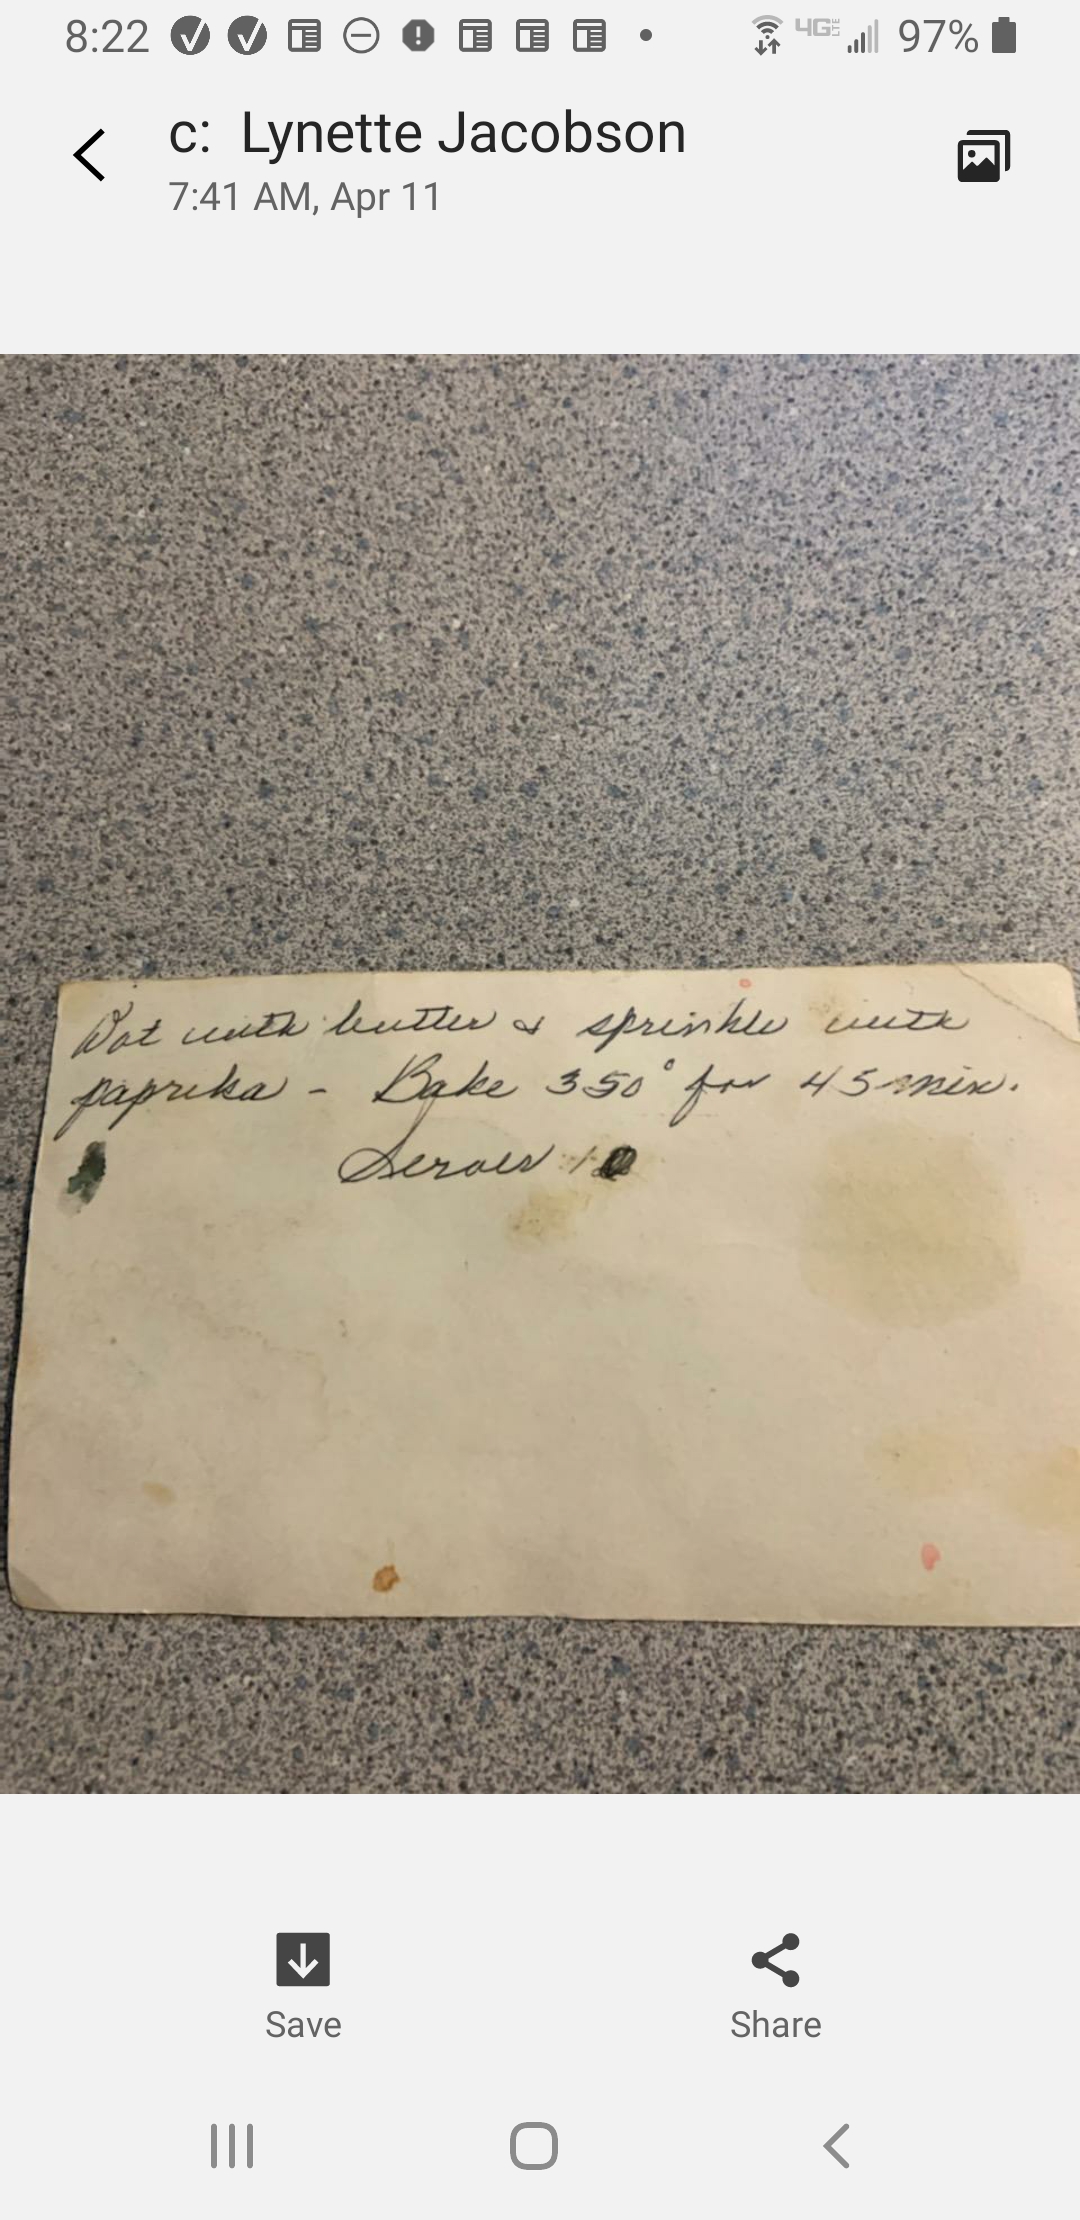 8:22
4G LTE
97%
c: Lynette Jacobson
7:41 AM, Apr 11
Dot with butter & sprinkle with
paprika - Bake 350° for 45 min.
Serves
Save
Share